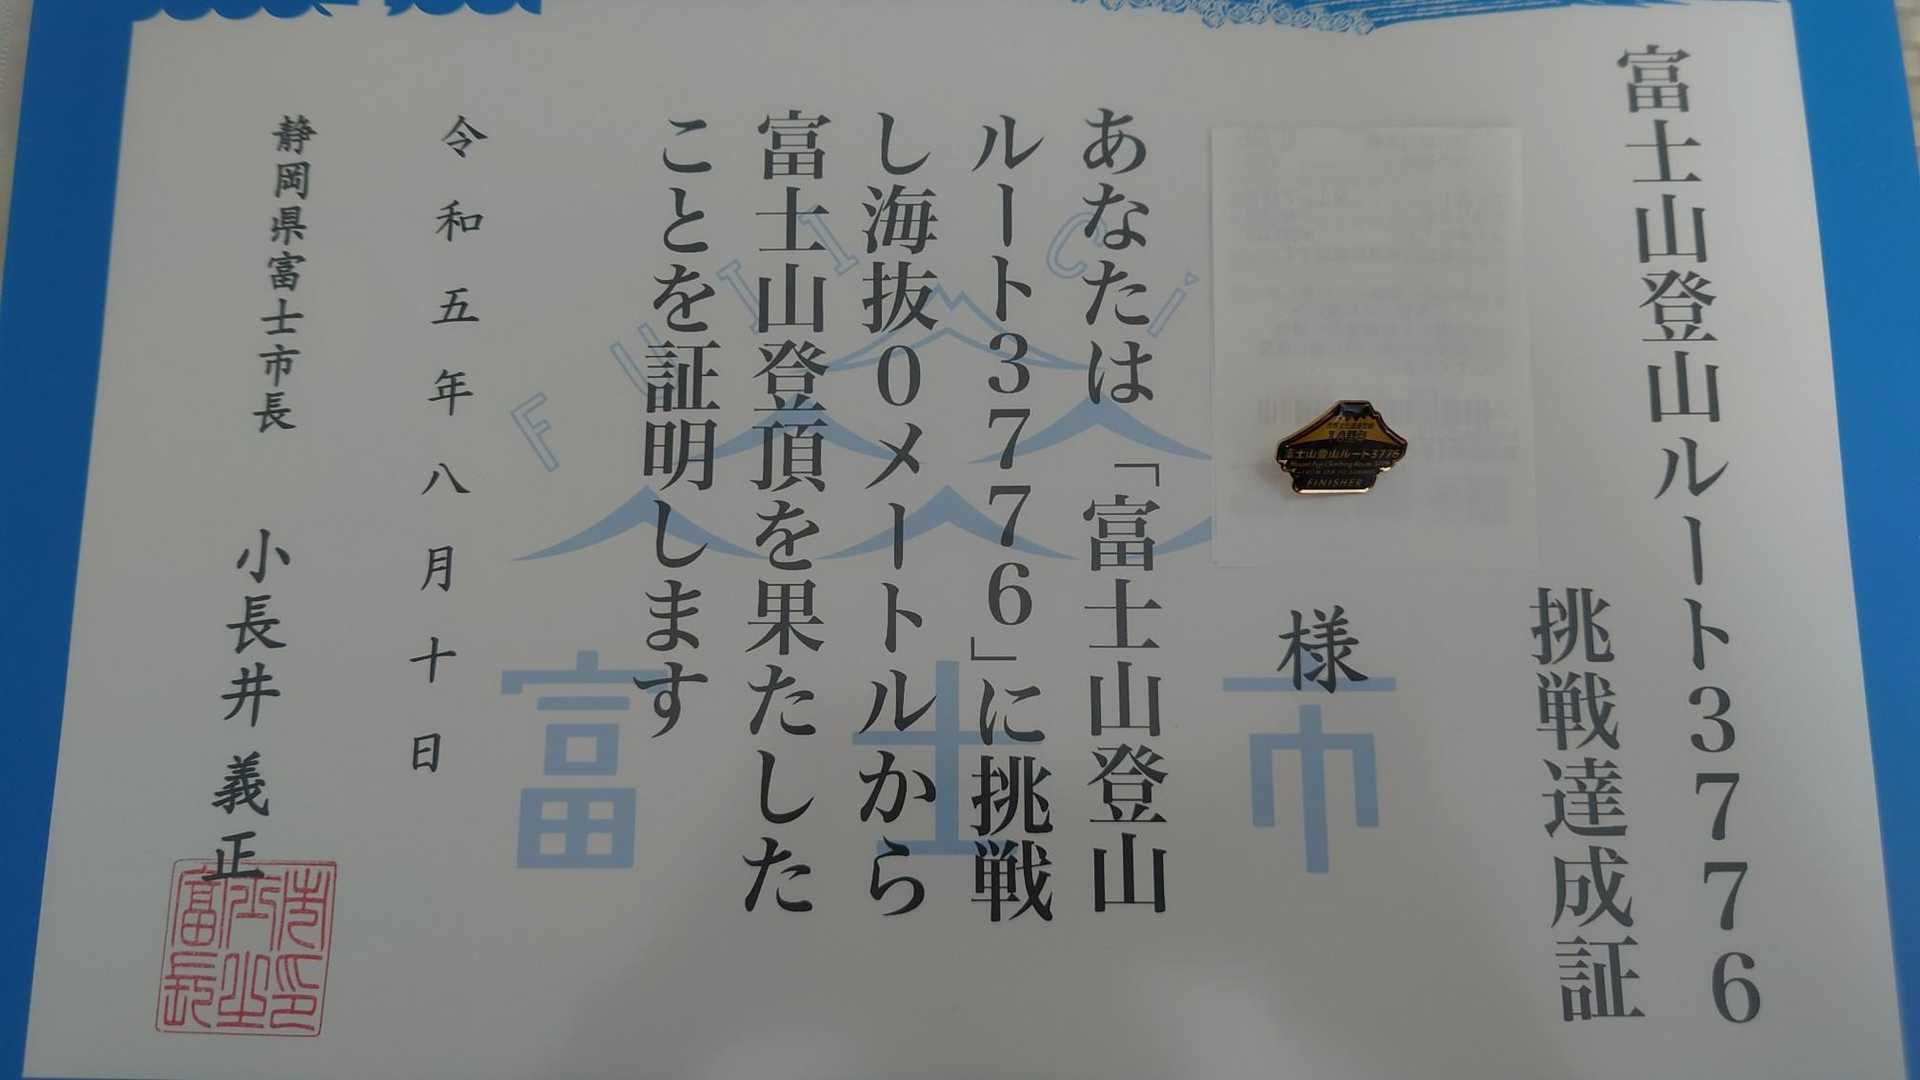 富士山登山ルート3776
挑戦達成証
様
あなたは「富士山登山
ルート3776」に挑戦
し海抜0メートルから
富士山登頂を果たした
ことを証明します
令和五年八月十日
静岡県富士市長 小長井義正
富士山登山ルート3776
Mount Fuji Climbing Route 3776
FINISHER
FUJI Ci
富士市